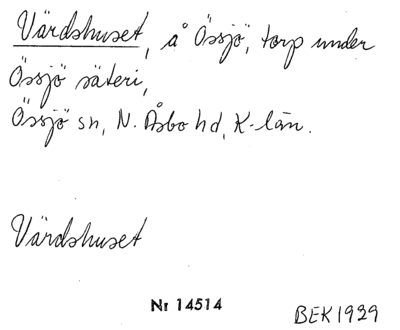 Värdshuset, å Össjö, torp under
Össjö säteri,
Össjö sn, N. Åsbo hd, K-län.
Värdshuset
Nr 14514
BEK 1929